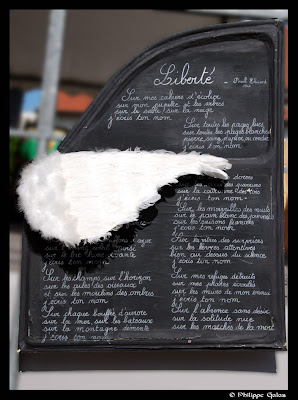 Liberté - Paul Eluard
Sur mes cahiers d'écolier
sur mon pupitre et les arbres
sur le sable sur la neige
j'écris ton nom
Sur toutes les pages lues
sur toutes les pages blanches
pierre sang papier ou cendre
j'écris ton nom
dorées
guerriers
rois
j'écris ton nom
Sur les merveilles des nuits
sur le pain blanc des journées
sur les saisons fiancées
j'écris ton nom
azur
vivante
ton nom
Sur les champs sur l'horizon
sur les ailes des oiseaux
et sur le moulin des ombres
j'écris ton nom
Sur chaque bouffée d'aurore
sur la mer sur les bateaux
sur la montagne démente
j'écris ton nom
Sur les vitres des surprises
sur les lèvres attendries
bien au dessus du silence
j'écris ton nom
Sur mes refuges détruits
sur mes phares écroulés
sur les murs de mon ennui
j'écris ton nom
Sur l'absence sans désir
sur la solitude nue
sur les marches de la mort
© Philippe Galow